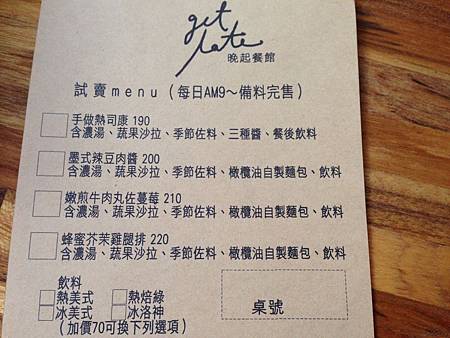 get
late
晚起餐館
試賣menu（每日AM9～備料完售）
手做熱司康 190
含濃湯、蔬果沙拉、季節佐料、三種醬、餐後飲料
墨式辣豆肉醬 200
含濃湯、蔬果沙拉、季節佐料、橄欖油自製麵包、飲料
嫩煎牛肉丸佐蔓莓 210
含濃湯、蔬果沙拉、季節佐料、橄欖油自製麵包、飲料
蜂蜜芥茉雞腿排 220
含濃湯、蔬果沙拉、季節佐料、橄欖油自製麵包、飲料
飲料
熱美式 熱焙綠
冰美式 冰洛神
（加價70可換下列選項）
桌號